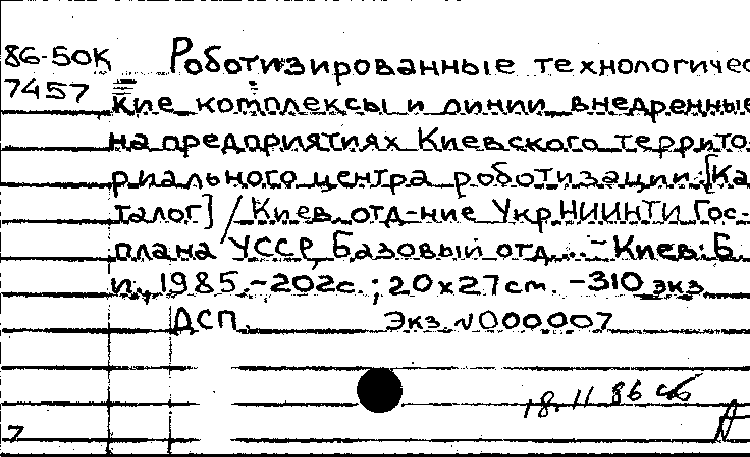 86-50К Роботизированные технологичес
7457 кие комплексы и линии внедренные
на предприятиях Киевского террито
риального центра роботизации: [Ка
талог] / Киев. отд-ние Укр.НИИНТИ Гос-
плана УССР, Базовый отд... - Киев: Б.
и., 1985. - 202с.; 20х27cm. - 310 экз.
ДСП. Экз. №000007
18.11.86
7